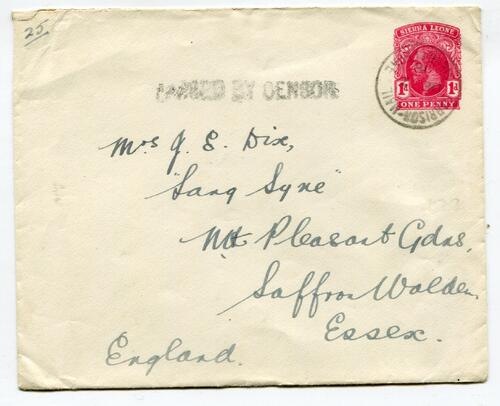 25
SIERRA LEONE
1d 1d
ONE PENNY
PASSED BY CENSOR
Mrs G. E. Dix,
"Lang Syne"
Mt Pleasant Gdns,
Saffron Walden,
Essex.
England.